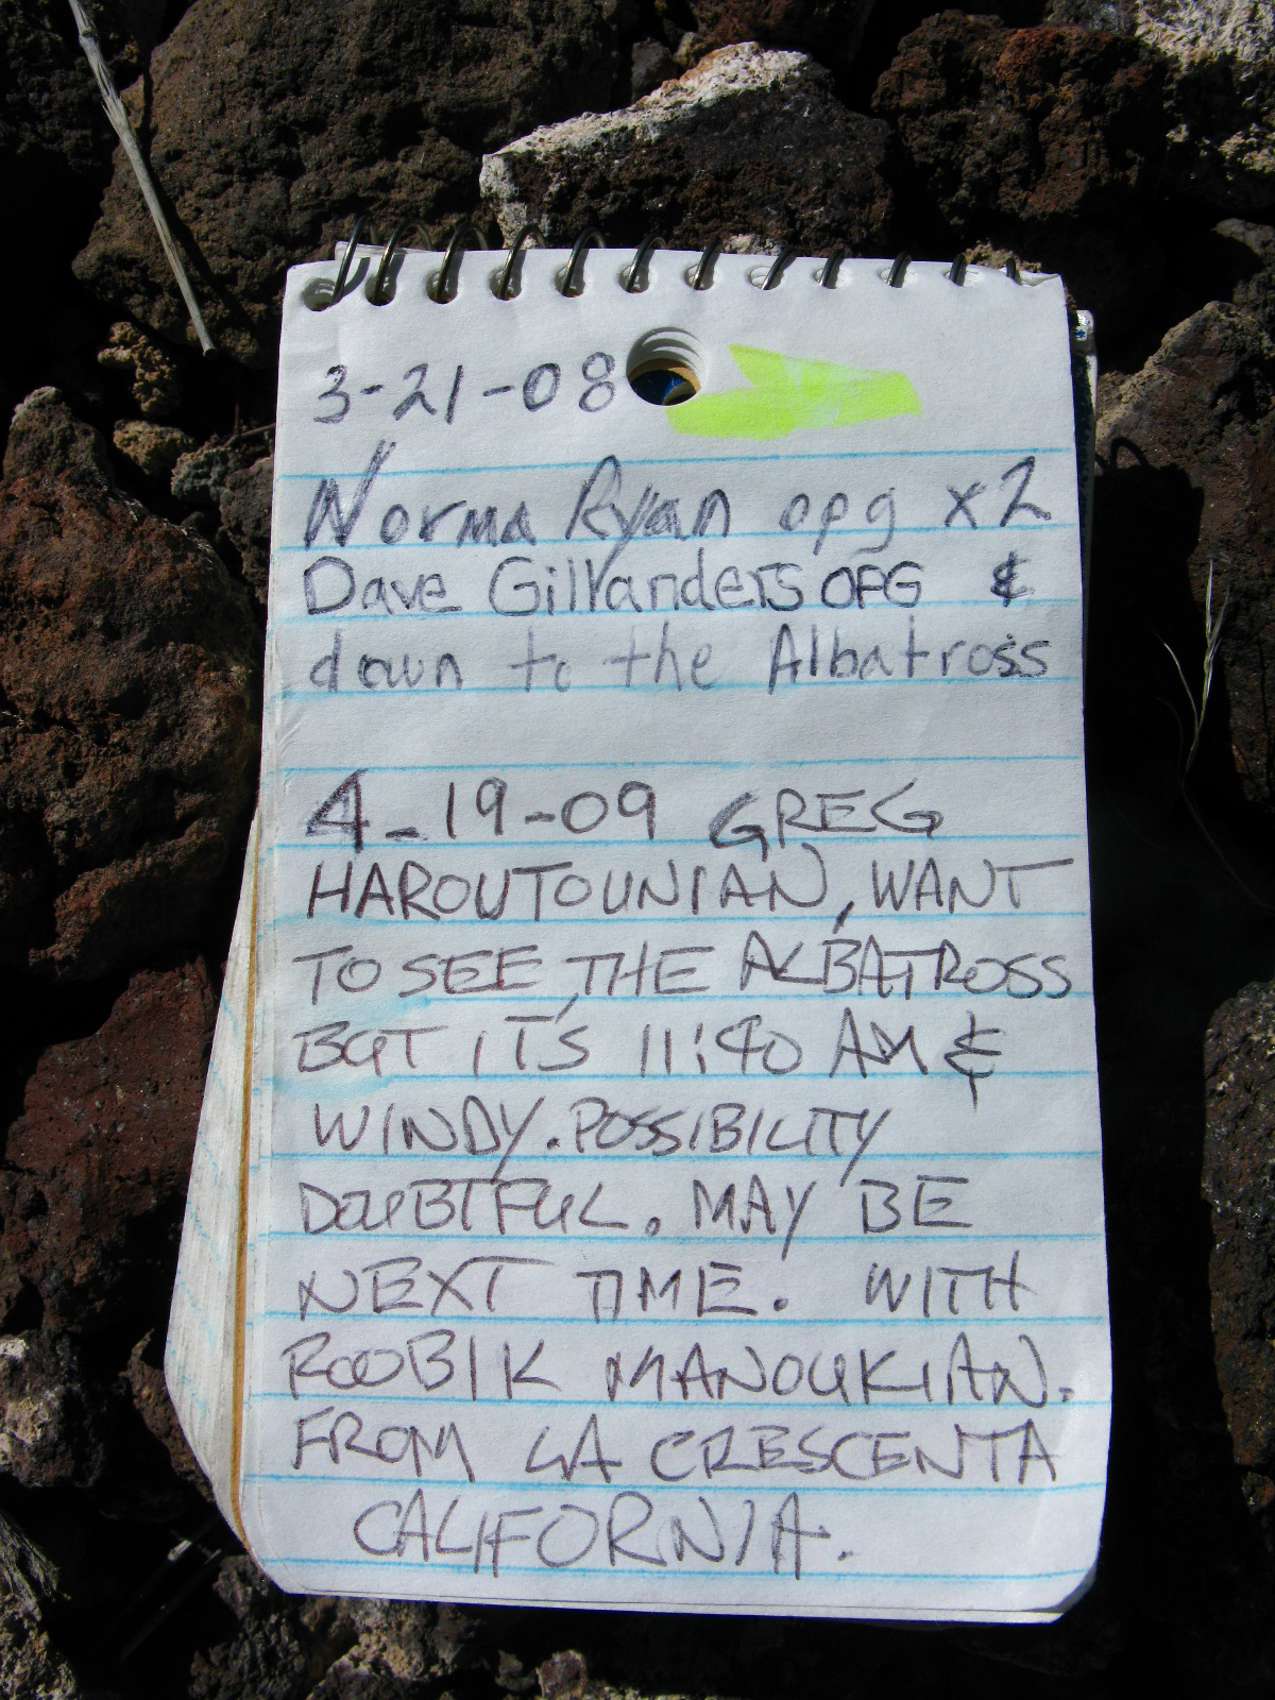 3-21-08
Norma Ryan opg x2
Dave GilVanders OPG &
down to the Albatross
4-19-09 GREG
HAROUTOUNIAN, WANT
TO SEE THE ALBATROSS
BUT IT'S 11:40 AM &
WINDY. POSSIBILITY
DOUBTFUL. MAY BE
NEXT TIME. WITH
ROOBIK MANOUKIAN.
FROM LA CRESCENTA
CALIFORNIA.